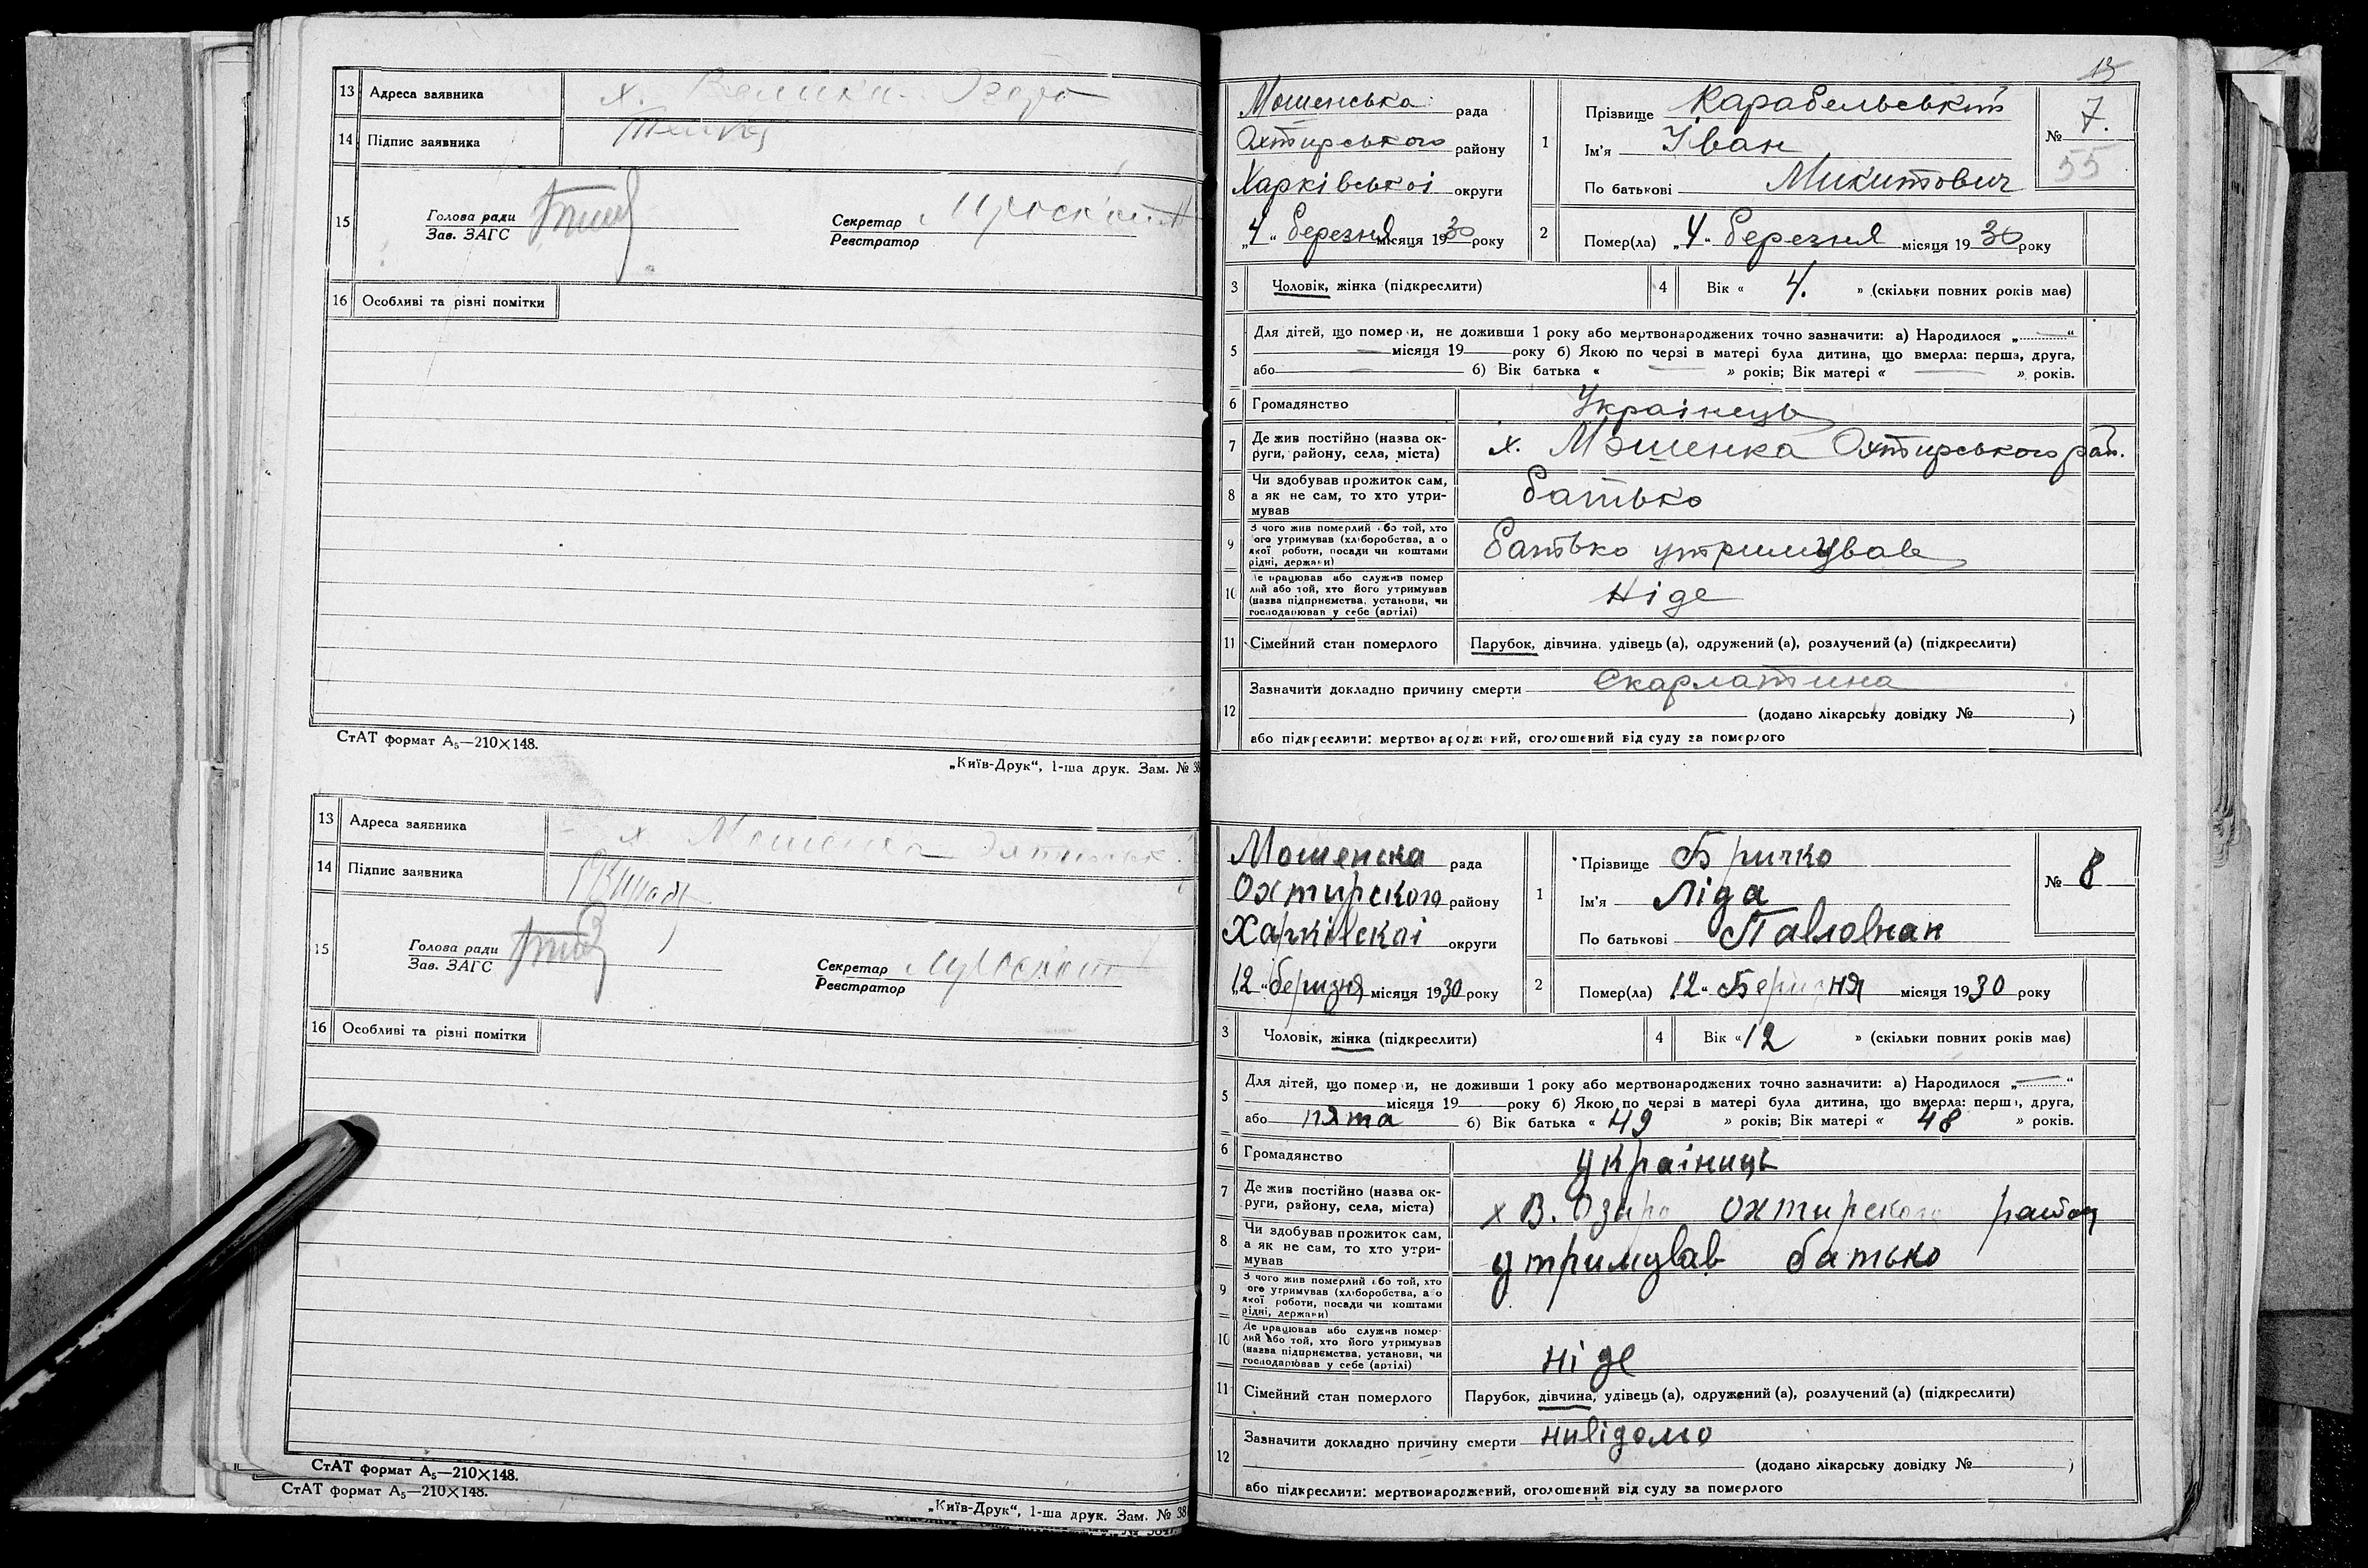 13 Адреса заявника х. Велики Озеро
14 Підпис заявника
15 Голова ради
Зав. ЗАГС
Секретар
Реєстратор
16 Особливі та різні помітки
СтАТ формат А₅—210×148.
„Київ-Друк“, 1-ша друк. Зам. № 38
13 Адреса заявника х Мошенка
14 Підпис заявника
15 Голова ради
Зав. ЗАГС
Секретар
Реєстратор
16 Особливі та різні помітки
СтАТ формат А₅—210×148.
СтАТ формат А₅—210×148.
„Київ-Друк“, 1-ша друк. Зам. № 38
Мошенська рада
Охтирського району
Харківськоі округи
„4“ березня місяця 1930 року
1 Прізвище Карабельський
Ім'я Іван
По батькові Микитович
№ 7.
55
2 Помер(ла) „4“ березня місяця 1930 року
3 Чоловік, жінка (підкреслити)
4 Вік « 4. » (скільки повних років має)
5 Для дітей, що померли, не доживши 1 року або мертвонароджених точно зазначити: а) Народилося „ — “
— місяця 19 року б) Якою по черзі в матері була дитина, що вмерла: перша, друга,
або — б) Вік батька « — » років; Вік матері « — » років.
6 Громадянство Украінець
7 Де жив постійно (назва округи, району, села, міста) х. Мошенка Охтирського рай.
8 Чи здобував прожиток сам, а як не сам, то хто утримував батько
9 З чого жив померлий або той, хто його утримував (хліборобства, з якої роботи, посади чи коштами рідні, держави) батько утримував
10 Де працював або служив померлий або той, хто його утримував (назва підприємства, установи, чи господарював у себе (артілі) Ніде
11 Сімейний стан померлого Парубок, дівчина, удівець (а), одружений (а), розлучений (а) (підкреслити)
12 Зазначити докладно причину смерти Скарлатина
(додано лікарську довідку № )
або підкреслити: мертвонароджений, оголошений від суду за померлого
Мошенска рада
Охтирского району
Харківскоі округи
„12“ беризня місяця 1930 року
1 Прізвище Бричко
Ім'я Ліда
По батькові Павловнан
№ 8
2 Помер(ла) 12“ Беризня місяця 1930 року
3 Чоловік, жінка (підкреслити)
4 Вік « 12 » (скільки повних років має)
5 Для дітей, що померли, не доживши 1 року або мертвонароджених точно зазначити: а) Народилося „ — “
місяця 19 року б) Якою по черзі в матері була дитина, що вмерла: перша, друга,
або пята б) Вік батька « 49 » років; Вік матері « 48 » років.
6 Громадянство украіниць
7 Де жив постійно (назва округи, району, села, міста) х В. Озиро охтирского району
8 Чи здобував прожиток сам, а як не сам, то хто утримував утримував батько
9 З чого жив померлий або той, хто його утримував (хліборобства, з якої роботи, посади чи коштами рідні, держави)
10 Де працював або служив померлий або той, хто його утримував (назва підприємства, установи, чи господарював у себе (артілі) ніде
11 Сімейний стан померлого Парубок, дівчина, удівець (а), одружений (а), розлучений (а) (підкреслити)
12 Зазначити докладно причину смерти нивідомо
(додано лікарську довідку № )
або підкреслити: мертвонароджений, оголошений від суду за померлого